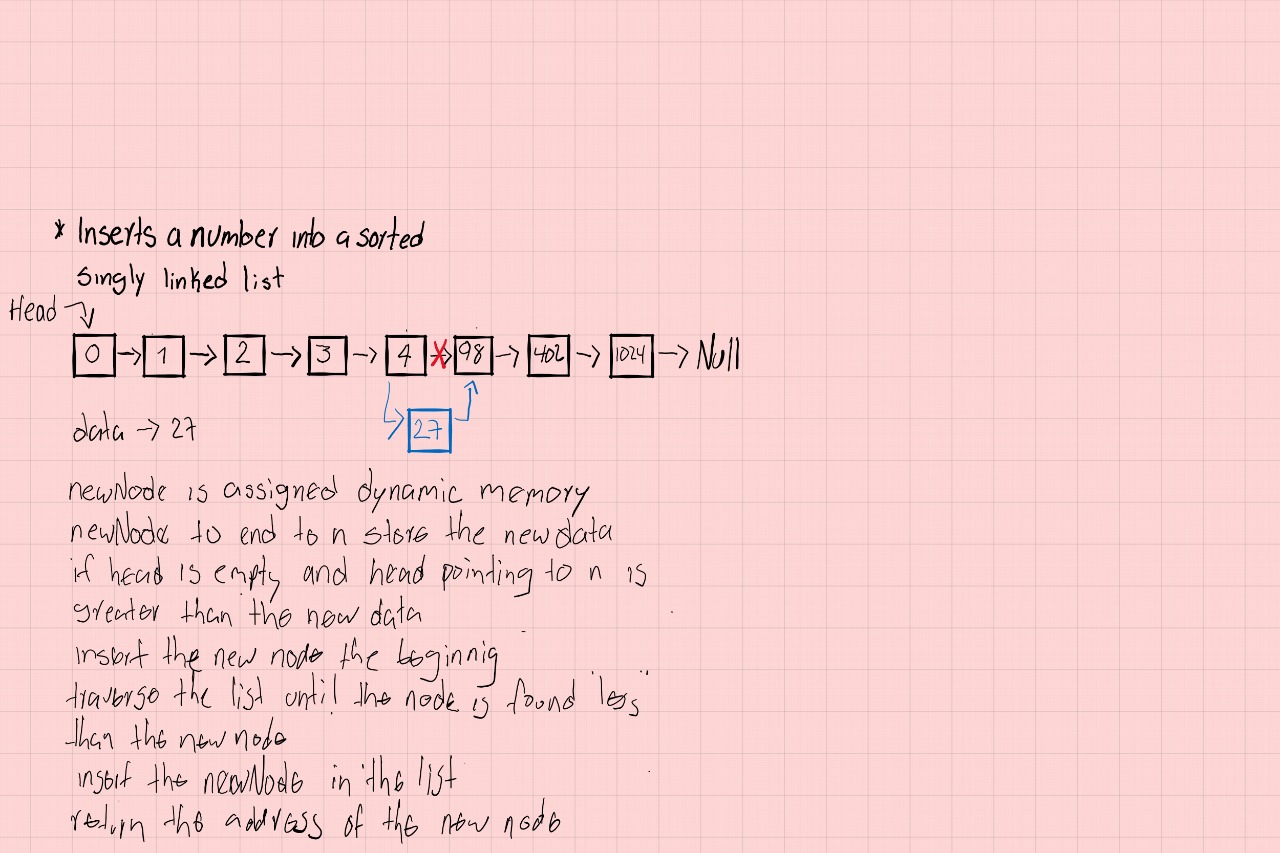 * Inserts a number into a sorted
singly linked list
Head
0 → 1 → 2 → 3 → 4 → 98 → 402 → 1024 → Null
data → 27
27
newNode is assigned dynamic memory
newNode to end to n store the new data
if head is empty and head pointing to n is
greater than the new data
insert the new node the beginnig
traverse the list until the node is found "less"
than the new node
insert the newNode in the list
return the address of the new node